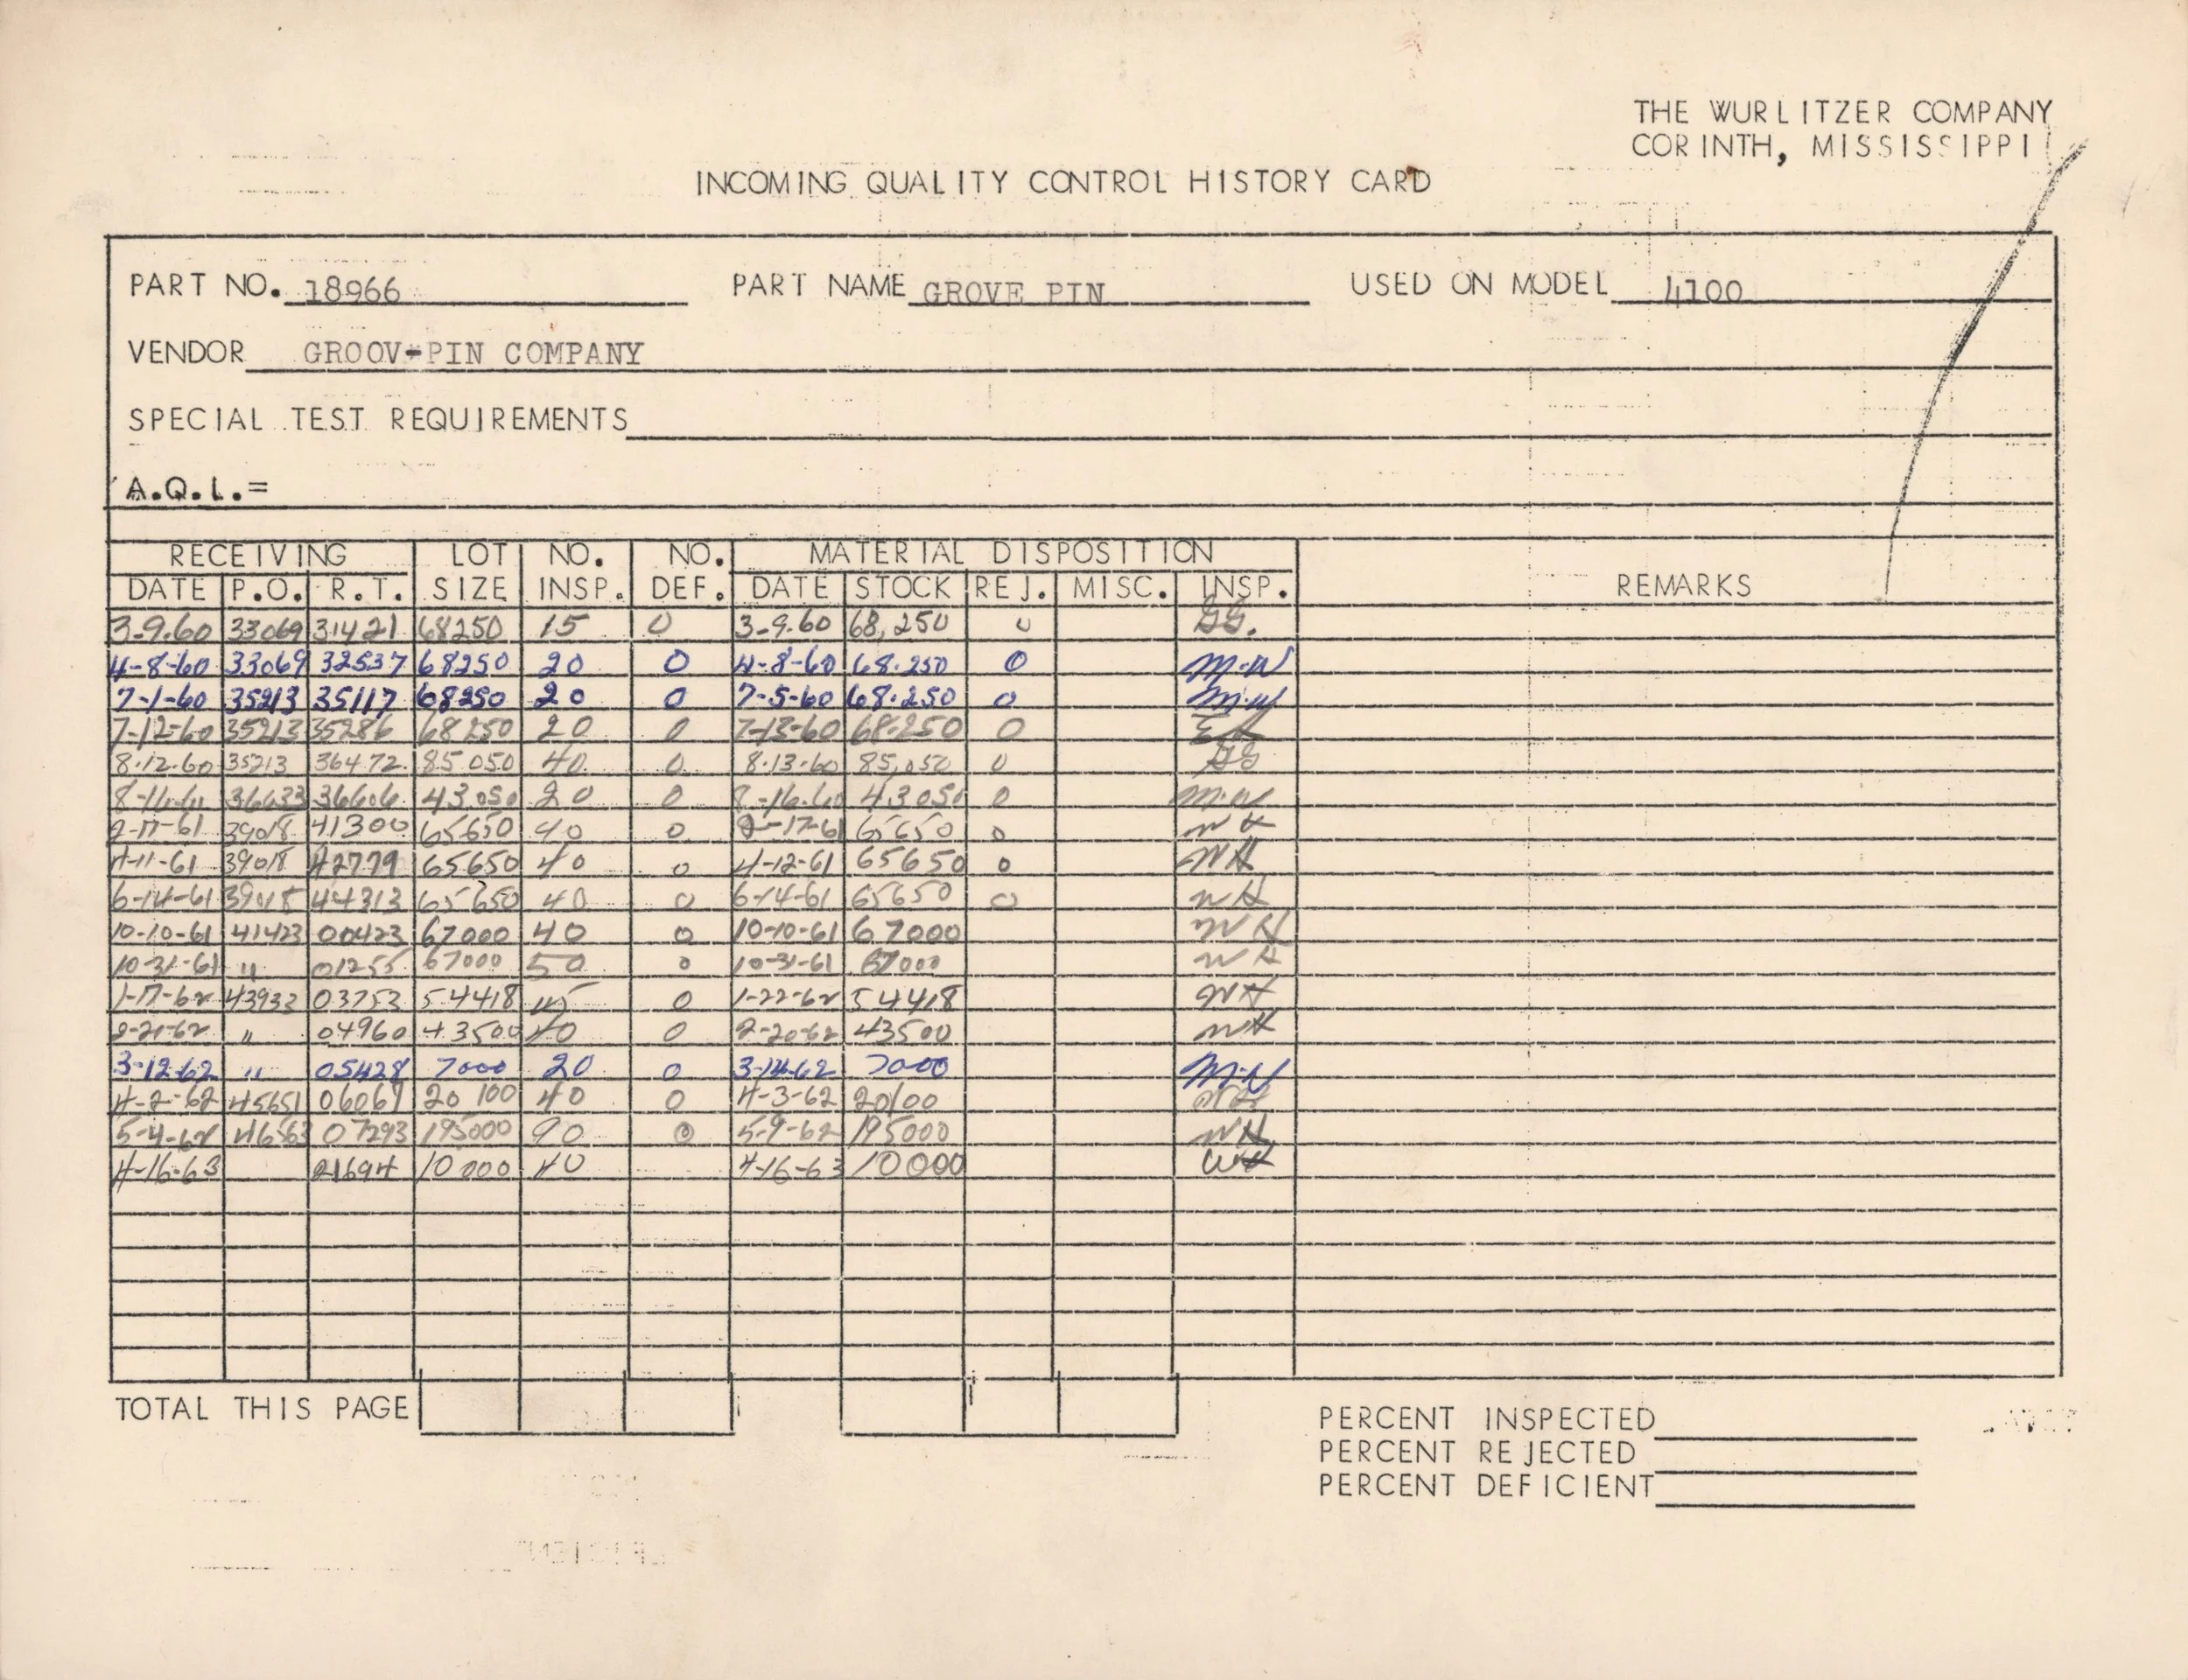 THE WURLITZER COMPANY
CORINTH, MISSISSIPPI
INCOMING QUALITY CONTROL HISTORY CARD
PART NO. 18966 PART NAME GROVE PIN USED ON MODEL 4100
VENDOR GROOV-PIN COMPANY
SPECIAL TEST REQUIREMENTS
A.Q.L.=
RECEIVING LOT NO. NO. MATERIAL DISPOSITION
DATE P.O. R.T. SIZE INSP. DEF. DATE STOCK REJ. MISC. INSP. REMARKS
3-9-60 33069 31421 68250 15 0 3-9-60 68,250 0 GG.
4-8-60 33069 32537 68250 20 0 4-8-60 68.250 0 M-W
7-1-60 35213 35117 68250 20 0 7-5-60 68.250 0 M-W
7-12-60 35213 35286 68250 20 0 7-13-60 68.250 0
8.12.60 35213 36472 85050 40 0 8.13.60 85,050 0 GG
36633 36606 43050 20 0 43050 0 M-W
2-17-61 39018 41300 65650 40 0 2-17-61 65650 0 WH
4-11-61 39018 42779 65650 40 0 4-12-61 65650 0 WH
6-14-61 39018 44313 65650 40 0 6-14-61 65650 0 WH
10-10-61 41423 00423 67000 40 0 10-10-61 67000 WH
10-31-61 " 01255 67000 50 0 10-31-61 67000 WH
1-17-62 43933 03753 54418 0 1-22-62 54418 WH
2-21-62 " 04960 43500 40 0 2-20-62 43500 WH
3-12-62 " 05428 7000 20 0 3-14-62 7000 M-W
4-2-62 45651 06069 20 100 40 0 4-3-62 20100 WH
5-4-62 46563 07293 195000 90 0 5-9-62 195000 WH
4-16-63 21694 10000 40 4-16-63 10000 WH
TOTAL THIS PAGE
PERCENT INSPECTED
PERCENT REJECTED
PERCENT DEFICIENT